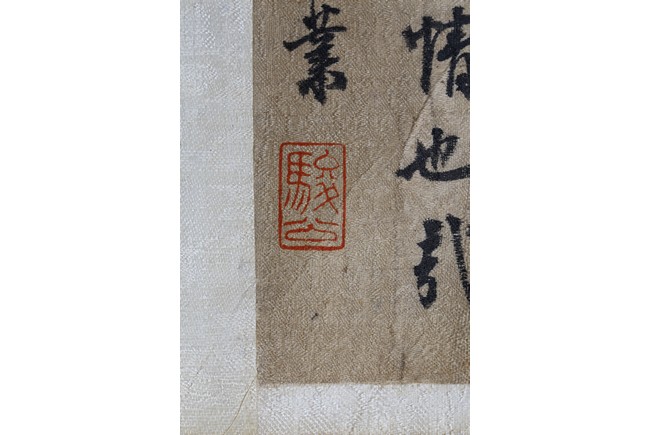 情也
業
駿公